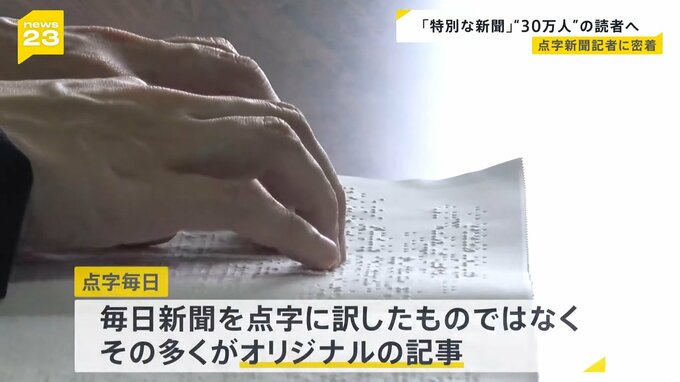 news
23
「特別な新聞」“30万人”の読者へ
点字新聞記者に密着
点字毎日
毎日新聞を点字に訳したものではなく
その多くがオリジナルの記事